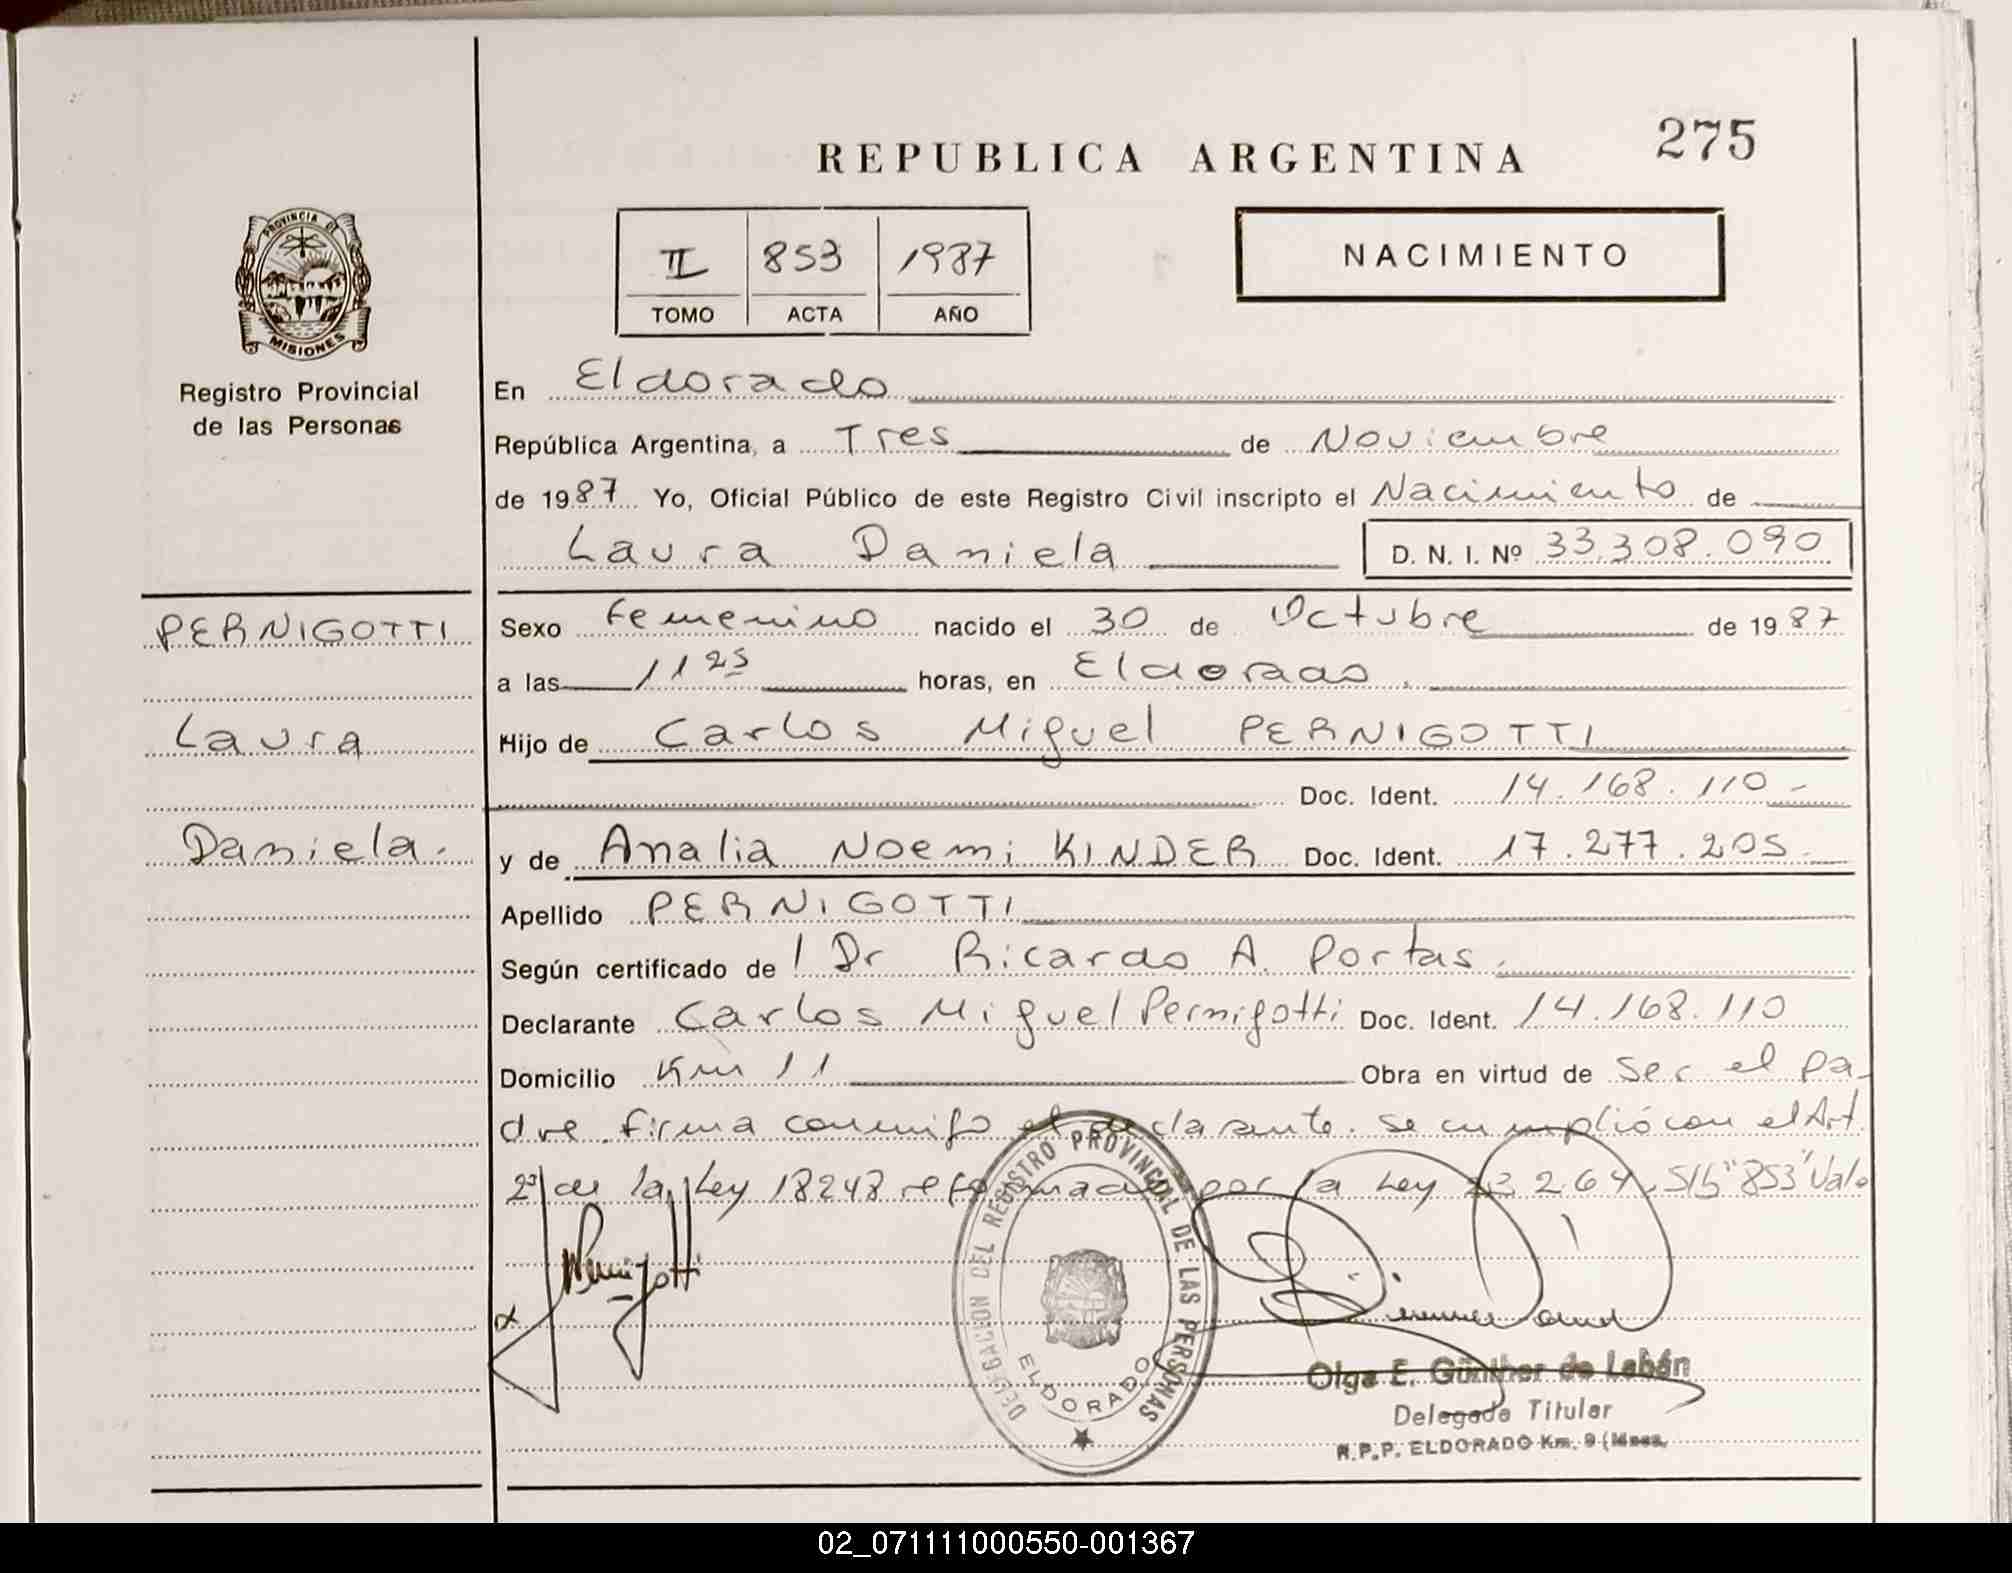 REPUBLICA ARGENTINA
275
PROVINCIA DE
MISIONES
Registro Provincial
de las Personas
II 853 1987
TOMO ACTA AÑO
NACIMIENTO
En Eldorado
República Argentina, a Tres de Noviembre
de 1987 Yo, Oficial Público de este Registro Civil inscripto el Nacimiento de
Laura Daniela D. N. I. Nº 33.308.090
PERNIGOTTI
Laura
Daniela.
Sexo Femenino nacido el 30 de Octubre de 1987
a las 11 25 horas, en Eldorado.
Hijo de Carlos Miguel PERNIGOTTI
Doc. Ident. 14.168.110-
y de Analia Noemi KINDER Doc. Ident. 17.277.205.
Apellido PERNIGOTTI
Según certificado de / Dr Ricardo A. Portas.
Declarante Carlos Miguel Pernigotti Doc. Ident. 14.168.110
Domicilio Km 11 Obra en virtud de ser el pa-
dre. firma conmigo el declarante. Se cumplió con el Art.
2º de la Ley 18248 reformada por la Ley 23264. S/b "853" Vale
Pernigotti
DELEGACION DEL REGISTRO PROVINCIAL DE LAS PERSONAS
ELDORADO
Olga E. Günther de Labán
Delegada Titular
R.P.P. ELDORADO Km. 9 (Mnes.
02_071111000550-001367